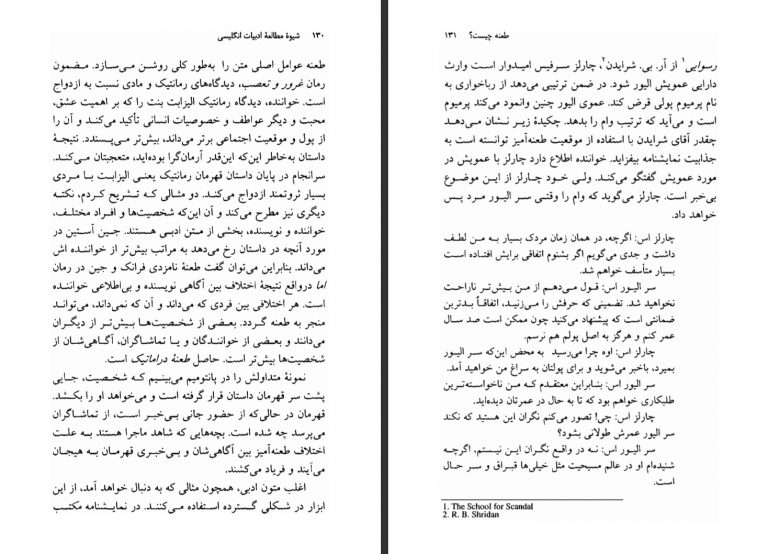 ۱۳۰ شیوهٔ مطالعهٔ ادبیات انگلیسی
طعنه عوامل اصلی متن را به‌طور کلی روشن می‌سازد. مضمون
رمان غرور و تعصب، دیدگاه‌های رمانتیک و مادی نسبت به ازدواج
است. خواننده، دیدگاه رمانتیک الیزابت بنت را که بر اهمیت عشق،
محبت و دیگر عواطف و خصوصیات انسانی تأکید می‌کند و آن را
از پول و موقعیت اجتماعی برتر می‌داند، بیش‌تر می‌پسندد. نتیجهٔ
داستان به‌خاطر این‌که این‌قدر آرمان‌گرا بوده‌اید، متعجبتان می‌کند.
سرانجام در پایان داستان قهرمان رمانتیک یعنی الیزابت با مردی
بسیار ثروتمند ازدواج می‌کند. دو مثالی که تشریح کردم، نکته
دیگری نیز مطرح می‌کند و آن این‌که شخصیت‌ها و افراد مختلف،
خواننده و نویسنده، بخشی از متن ادبی هستند. جین آستین در
مورد آنچه در داستان رخ می‌دهد به مراتب بیش‌تر از خواننده اش
می‌داند. بنابراین می‌توان گفت طعنهٔ نامزدی فرانک و جین در رمان
اما درواقع نتیجهٔ اختلاف بین آگاهی نویسنده و بی‌اطلاعی خواننده
است. هر اختلافی بین فردی که می‌داند و آن که نمی‌داند، می‌تواند
منجر به طعنه گردد. بعضی از شخصیت‌ها بیش‌تر از دیگران
می‌دانند و بعضی از خوانندگان و یا تماشاگران، آگاهی‌شان از
شخصیت‌ها بیش‌تر است. حاصل طعنهٔ دراماتیک است.
نمونهٔ متداولش را در پانتومیم می‌بینیم که شخصیت، جایی
پشت سر قهرمان داستان قرار گرفته است و می‌خواهد او را بکشد.
قهرمان در حالی‌که از حضور جانی بی‌خبر است، از تماشاگران
می‌پرسد چه شده است. بچه‌هایی که شاهد ماجرا هستند به علت
اختلاف طعنه‌آمیز بین آگاهی‌شان و بی‌خبری قهرمان به هیجان
می‌آیند و فریاد می‌کشند.
اغلب متون ادبی، همچون مثالی که به دنبال خواهد آمد، از این
ابزار در شکلی گسترده استفاده می‌کنند. در نمایشنامه مکتب
طعنه چیست؟ ۱۳۱
رسوایی۱ از آر. بی. شرایدن۲، چارلز سرفیس امیدوار است وارث
دارایی عمویش الیور شود. در ضمن ترتیبی می‌دهد از رباخواری به
نام پرمیوم پولی قرض کند. عموی الیور چنین وانمود می‌کند پرمیوم
است و می‌آید که ترتیب وام را بدهد. چکیدهٔ زیر نشان می‌دهد
چقدر آقای شرایدن با استفاده از موقعیت طعنه‌آمیز توانسته است به
جذابیت نمایشنامه بیفزاید. خواننده اطلاع دارد چارلز با عمویش در
مورد عمویش گفتگو می‌کند. ولی خود چارلز از این موضوع
بی‌خبر است. چارلز می‌گوید که وام را وقتی سر الیور مرد پس
خواهد داد.
چارلز اس: اگرچه، در همان زمان مردک بسیار به من لطف
داشت و جدی می‌گویم اگر بشنوم اتفاقی برایش افتاده است
بسیار متأسف خواهم شد.
سر الیور اس: قول می‌دهم از من بیش‌تر ناراحت
نخواهید شد. تضمینی که حرفش را می‌زنید، اتفاقاً بدترین
ضمانتی است که پیشنهاد می‌کنید چون ممکن است صد سال
عمر کنم و هرگز به اصل پولم هم نرسم.
چارلز اس: اوه چرا می‌رسید به محض این‌که سر الیور
بمیرد، باخبر می‌شوید و برای پولتان به سراغ من خواهید آمد.
سر الیور اس: بنابراین معتقدم که من ناخواسته‌ترین
طلبکاری خواهم بود که تا به حال در عمرتان دیده‌اید.
چارلز اس: چی! تصور می‌کنم نگران این هستید که نکند
سر الیور عمرش طولانی بشود؟
سر الیور اس: نه در واقع نگران این نیستم، اگرچه
شنیده‌ام او در عالم مسیحیت مثل خیلی‌ها قبراق و سر حال
است.
1. The School for Scandal
2. R. B. Shridan